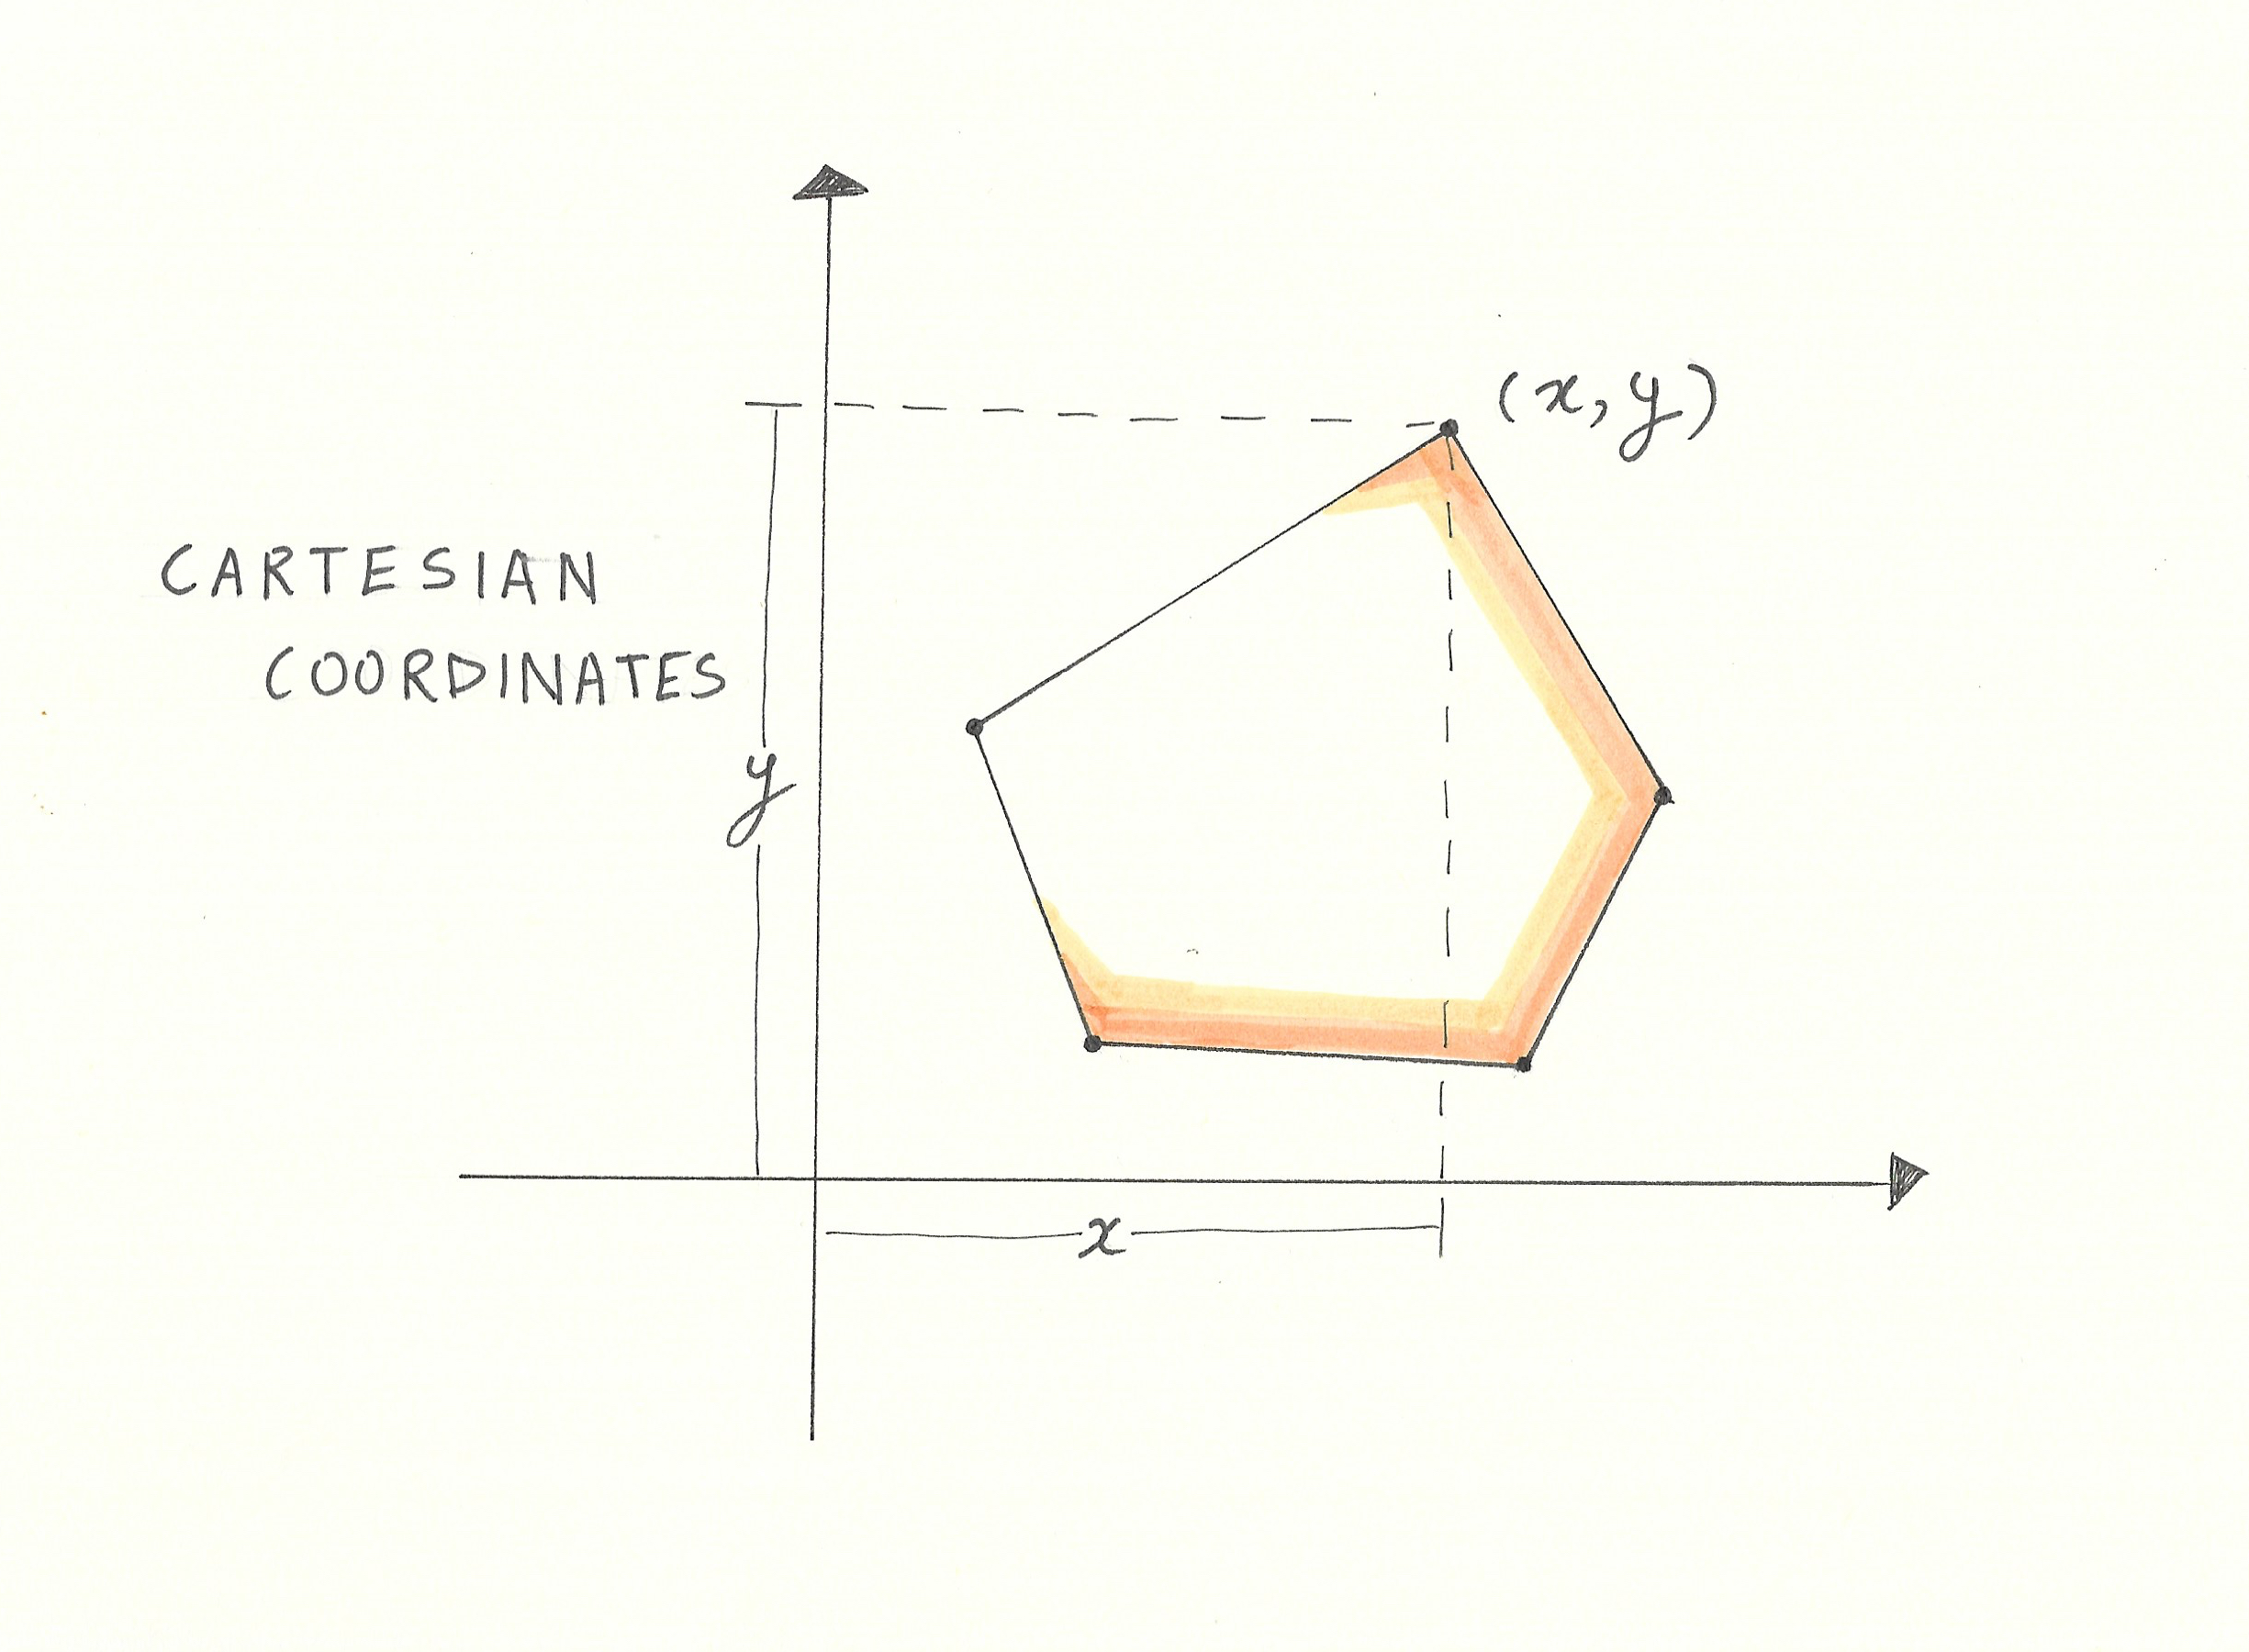 (x, y)
CARTESIAN
COORDINATES
y
x